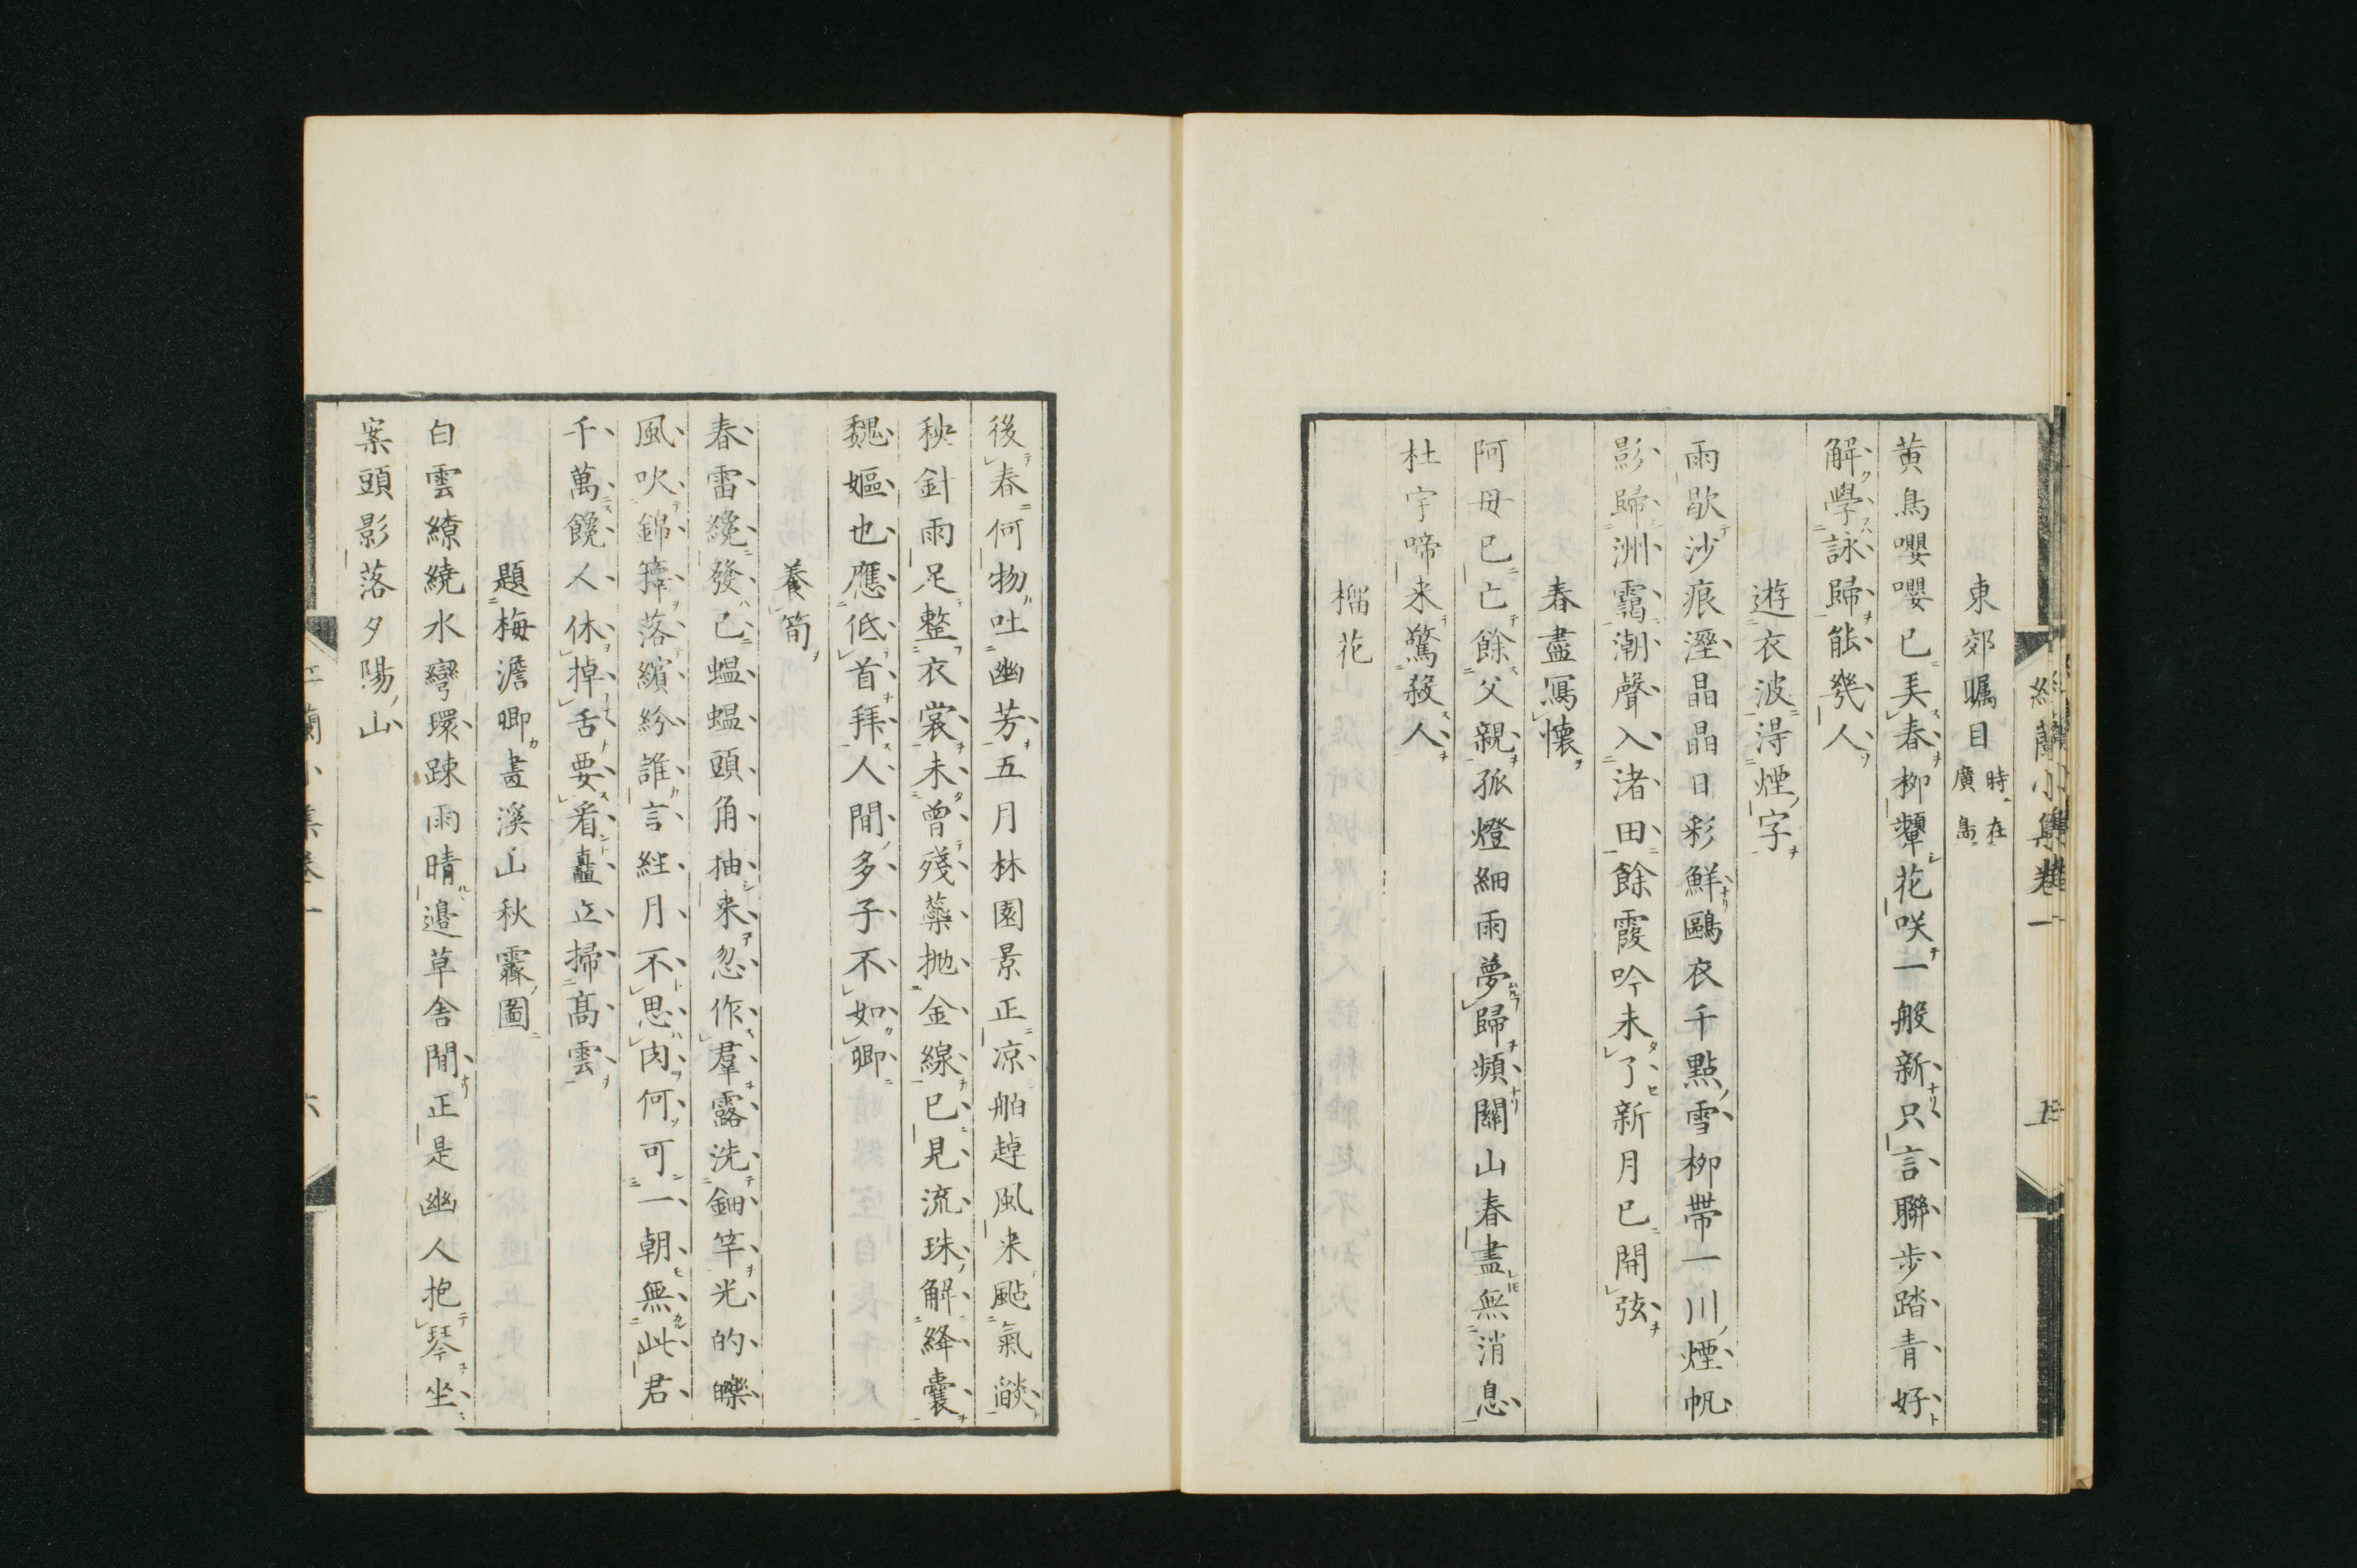 東郊矚目 時在廣島
黄鳥嚶嚶已美春柳顰花咲一般新只言聯步踏青好
解學詠歸能幾人
遊衣波淂煙字
雨歇沙痕溼晶晶日彩鮮鷗衣千點雪柳帶一川煙帆
影歸洲靄潮聲入渚田餘霞吟未了新月已開弦
春盡寫懷
阿母已亡餘父親孤燈細雨夢歸頻關山春盡無消息
杜宇啼来驚殺人
榴花
蘭小集卷一
後春何物吐幽芳五月林園景正凉舶趠風来颭氣燄
秧針雨足整衣裳未曾殘藥拋金線已見流珠解絳囊
魏嫗也應低首拜人間多子不如卿
養筍
春雷纔發已蝹蝹頭角抽来忽作羣露洗鈿竿光的皪
風吹錦籜落繽紛誰言經月不思肉何可一朝無此君
千萬饞人休掉舌要看矗立掃髙雲
題梅澹卿畫溪山秋霽圖
白雲繚繞水彎環踈雨晴邉草舎閒正是幽人抱琴坐
案頭影落夕陽山
蘭小集卷一 六